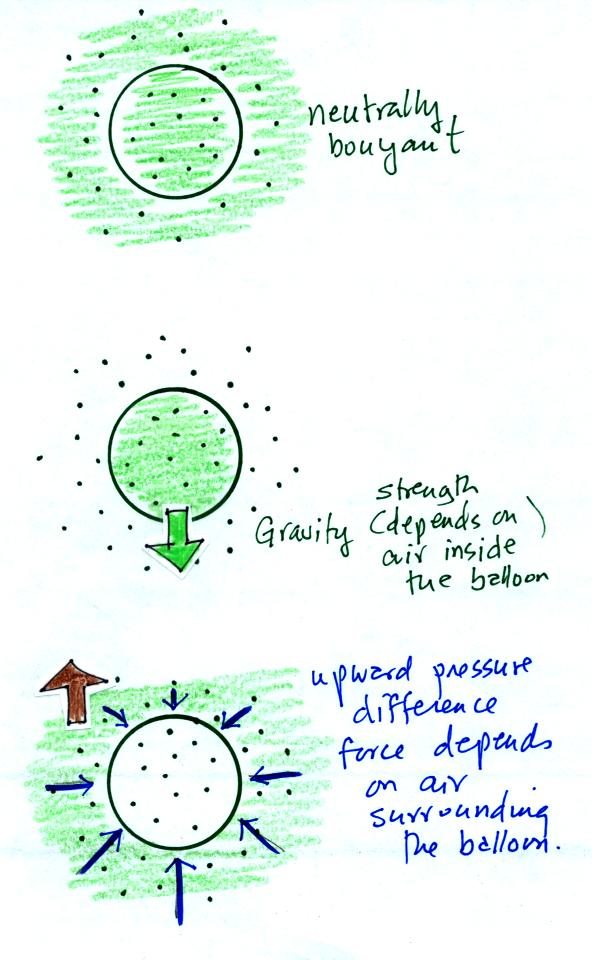 neutrally
bouyant
strength
Gravity (depends on)
air inside
the balloon
upward pressure
difference
force depends
on air
surrounding
the balloon.